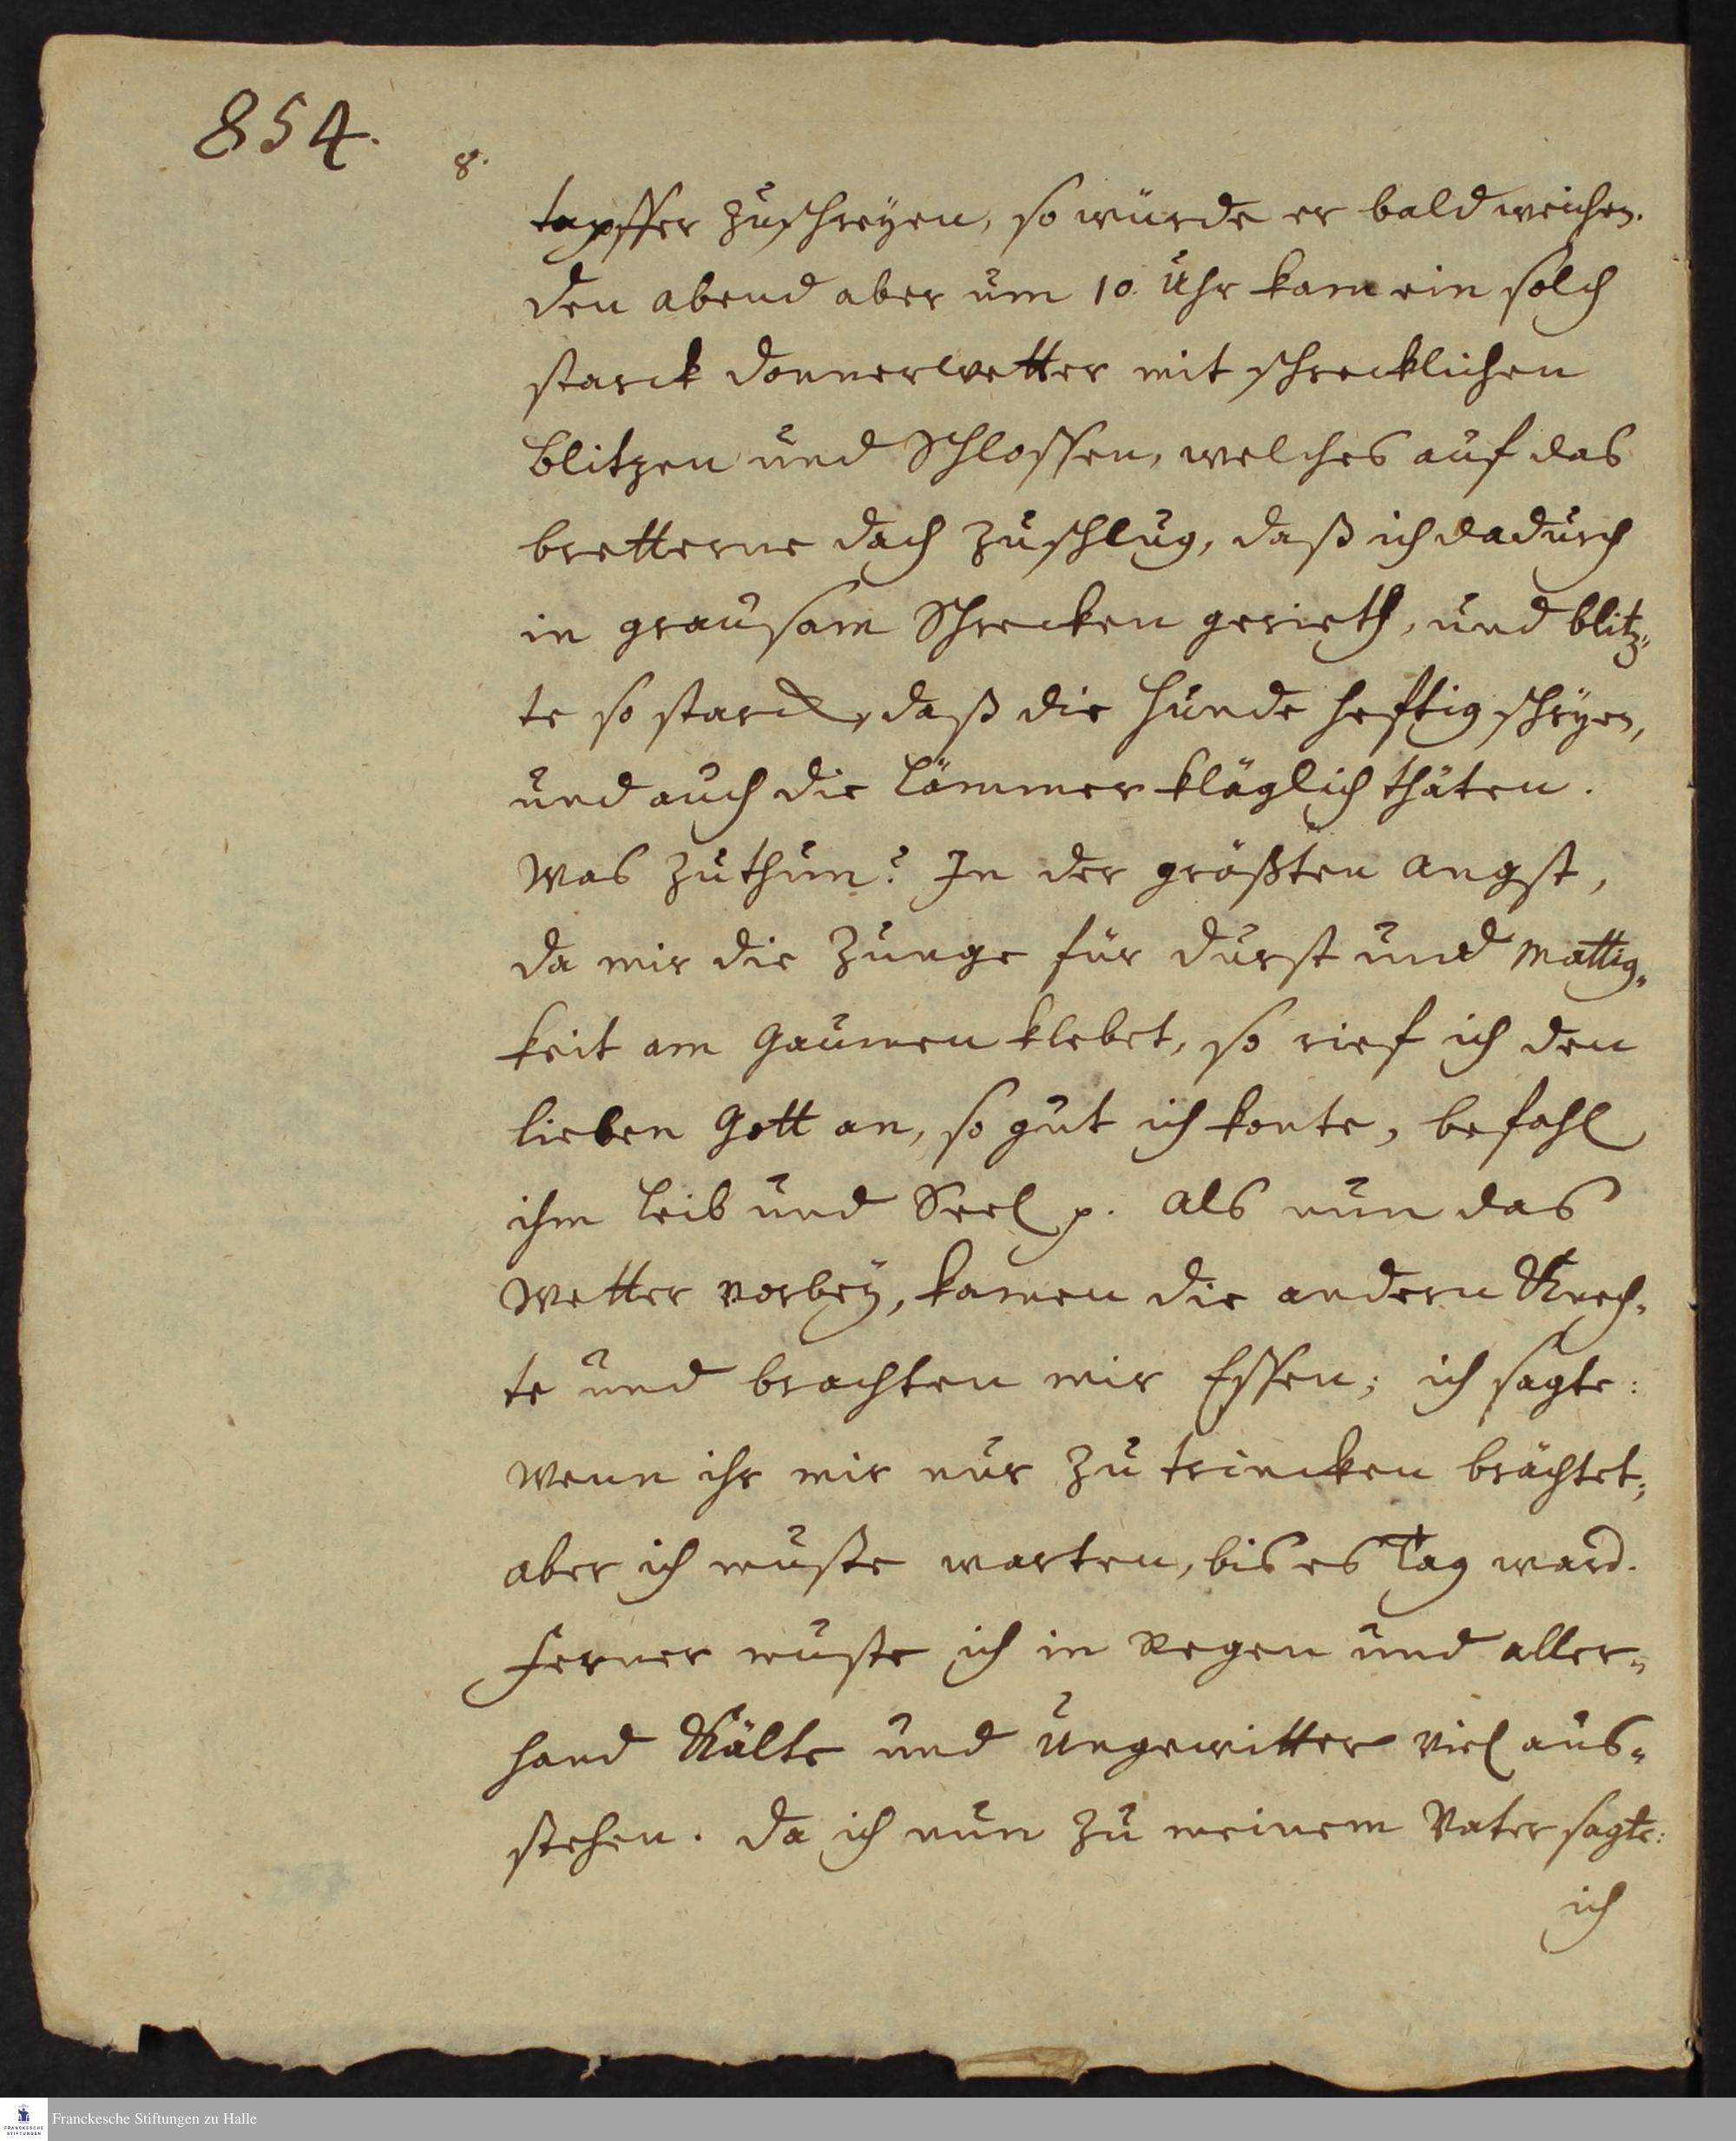 854.
8.
tapffer zuschreyen, so würde er bald weichen.
Den abend aber um 10. Uhr kam ein solch
starck Donnerwetter mit schrecklichen
Blitzen und Schlossen, welches auf das
bretterne Dach zuschlug, daß ich dadurch
in grausam Schrecken gerieth, und blitz-
te so starck, daß die Hunde hefftig schryen,
und auch die Lämmer kläglich thäten.
Was zuthun? In der größten Angst,
da mir die Zunge für Durst und Mattig-
keit am Gaumen klebet, so rief ich den
lieben Gott an, so gut ich konte, befahl
ihm Leib und Seel p. Als nun das
Wetter vorbey, kamen die andern Knech-
te und brachten mir Essen; ich sagte:
Wenn ihr mir nur zu trincken brächtet;
aber ich muste warten, bis es Tag ward.
Ferner muste ich in Regen und aller-
hand Kälte und Ungewitter viel aus-
stehen. Da ich nun zu meinem Vater sagte:
ich
Franckesche Stiftungen zu Halle
FRANCKESCHE
STIFTUNGEN